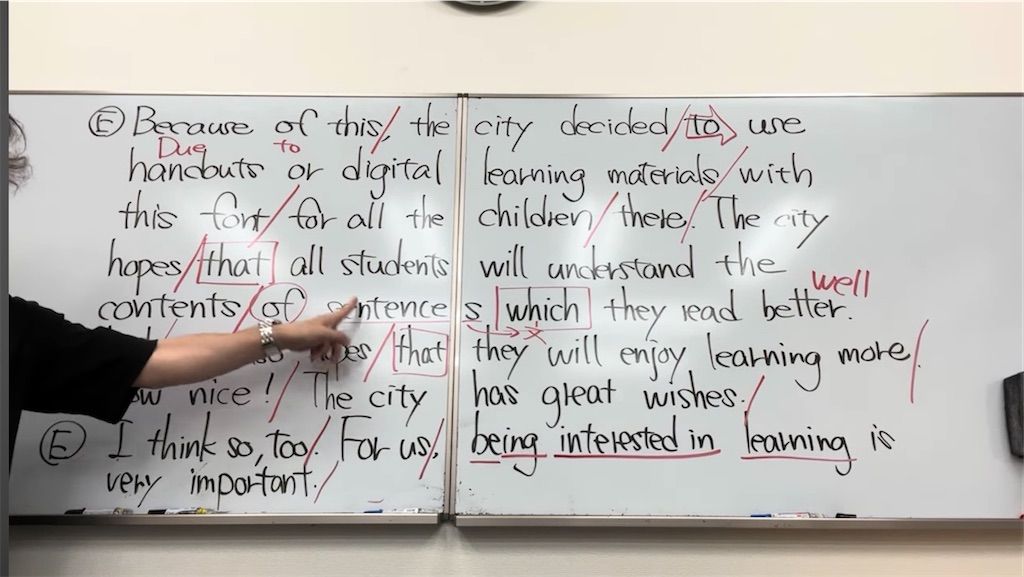 Ⓔ Because of this, the city decided to use
Due to
handouts or digital learning materials with
this font for all the children there. The city
hopes that all students will understand the
well
contents of sentences which they read better.
that they will enjoy learning more
nice! The city has great wishes.
Ⓔ I think so, too. For us, being interested in learning is
very important.